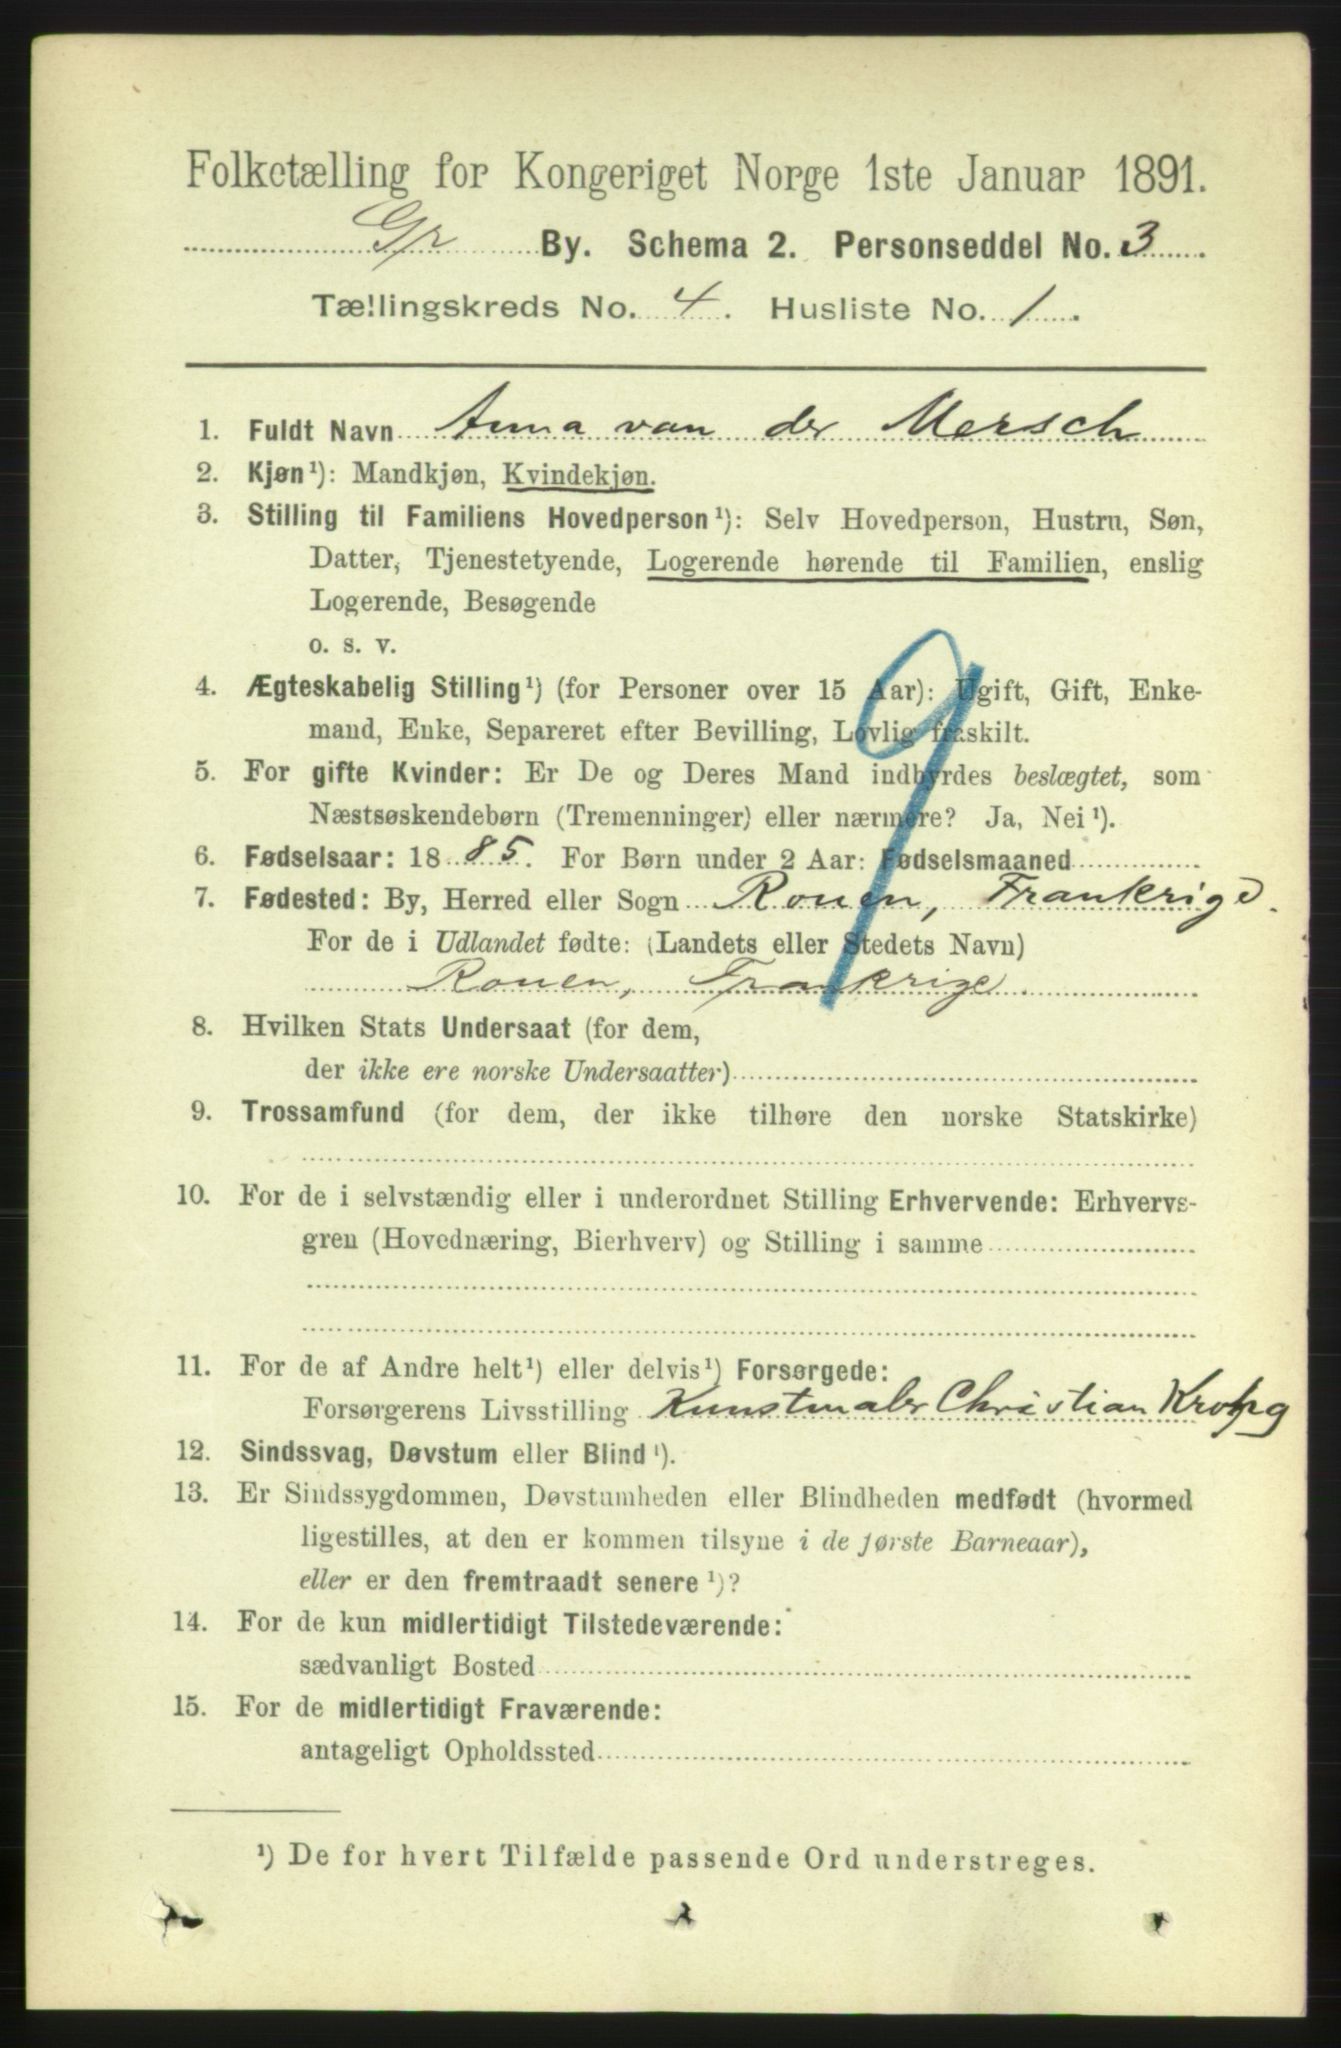 Folketælling for Kongeriget Norge 1ste Januar 1891.
Gr By. Schema 2. Personseddel No. 3
Tællingskreds No. 4. Husliste No. 1.
1. Fuldt Navn Anna van der Mersch
2. Kjøn¹): Mandkjøn, Kvindekjøn.
3. Stilling til Familiens Hovedperson¹): Selv Hovedperson, Hustru, Søn,
Datter, Tjenestetyende, Logerende hørende til Familien, enslig
Logerende, Besøgende
o. s. v.
4. Ægteskabelig Stilling¹) (for Personer over 15 Aar): Ugift, Gift, Enke-
mand, Enke, Separeret efter Bevilling, Lovlig fraskilt.
5. For gifte Kvinder: Er De og Deres Mand indbyrdes beslægtet, som
Næstsøskendebørn (Tremenninger) eller nærmere? Ja, Nei¹).
6. Fødselsaar: 1885. For Børn under 2 Aar: Fødselsmaaned
7. Fødested: By, Herred eller Sogn Rouen, Frankrige.
For de i Udlandet fødte: (Landets eller Stedets Navn)
Rouen, Frankrige.
8. Hvilken Stats Undersaat (for dem,
der ikke ere norske Undersaatter)
9. Trossamfund (for dem, der ikke tilhøre den norske Statskirke)
10. For de i selvstændig eller i underordnet Stilling Erhvervende: Erhvervs-
gren (Hovednæring, Bierhverv) og Stilling i samme
11. For de af Andre helt¹) eller delvis¹) Forsørgede:
Forsørgerens Livsstilling Kunstmaler Christian Krohg
12. Sindssvag, Døvstum eller Blind¹).
13. Er Sindssygdommen, Døvstumheden eller Blindheden medfødt (hvormed
ligestilles, at den er kommen tilsyne i de første Barneaar),
eller er den fremtraadt senere¹)?
14. For de kun midlertidigt Tilstedeværende:
sædvanligt Bosted
15. For de midlertidigt Fraværende:
antageligt Opholdssted
¹) De for hvert Tilfælde passende Ord understreges.
9